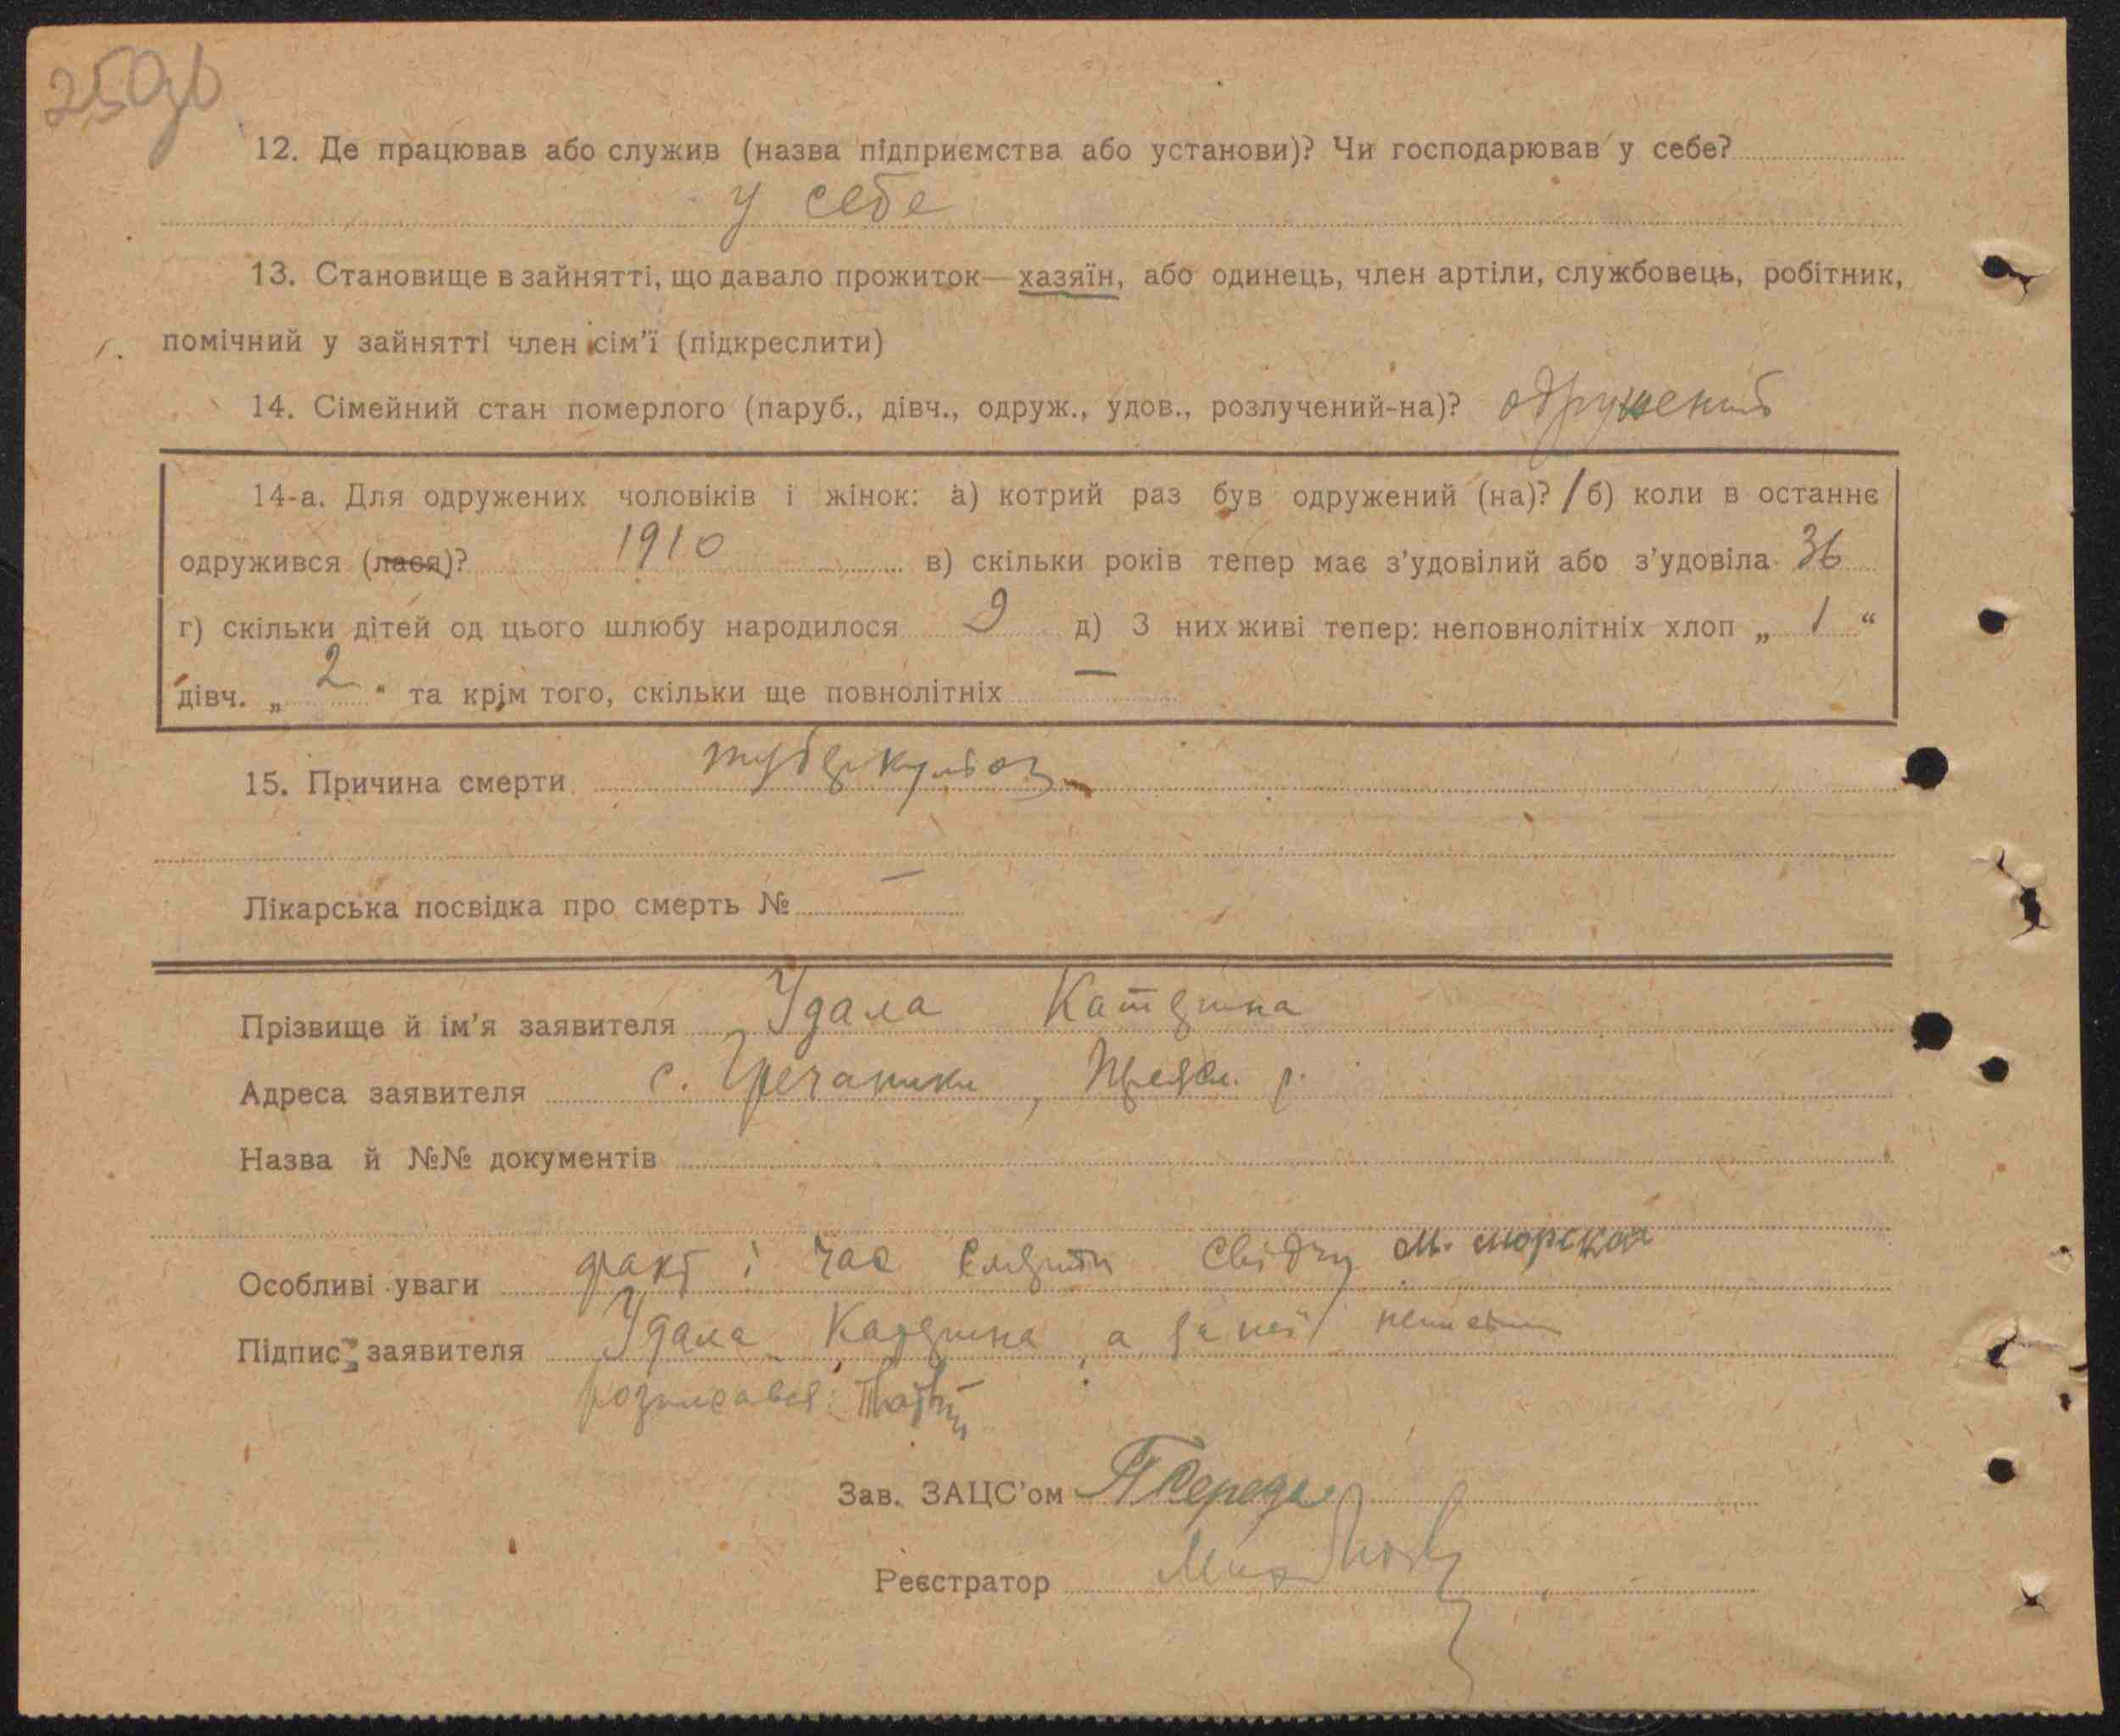 250зв
12. Де працював або служив (назва підприємства або установи)? Чи господарював у себе?
у себе
13. Становище в зайнятті, що давало прожиток—хазяїн, або одинець, член артіли, службовець, робітник,
помічний у зайнятті член сім’ї (підкреслити)
14. Сімейний стан померлого (паруб., дівч., одруж., удов., розлучений-на)? одружений
14-а. Для одружених чоловіків і жінок: а) котрий раз був одружений (на)? 1 б) коли в останнє
одружився (лася)? 1910 в) скільки років тепер має з’удовілий або з’удовіла 36
г) скільки дітей од цього шлюбу народилося 9 д) З них живі тепер: неповнолітніх хлоп „ 1 “
дівч. „ 2 “ та крім того, скільки ще повнолітніх —
15. Причина смерти туберкульоз
Лікарська посвідка про смерть № —
Прізвище й ім’я заявителя Удала Катерина
Адреса заявителя с. Гречаники,
Назва й №№ документів
Особливі уваги факт і час смерти свідчу М. Морская
Підпис заявителя Удала Катерина, а за неї
розписався:
Зав. ЗАЦС’ом П Середа
Реєстратор